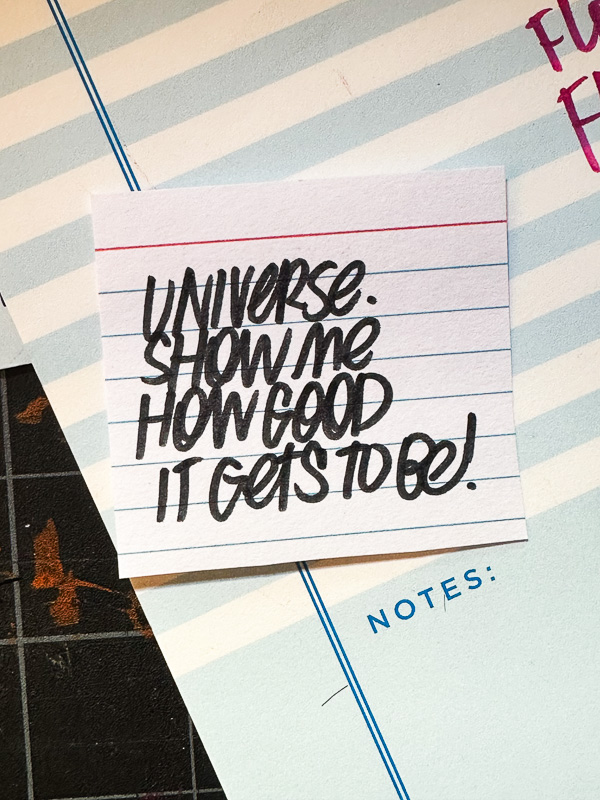 UNIVERSE.
SHOW ME
HOW GOOD
IT GETS TO BE!
NOTES: